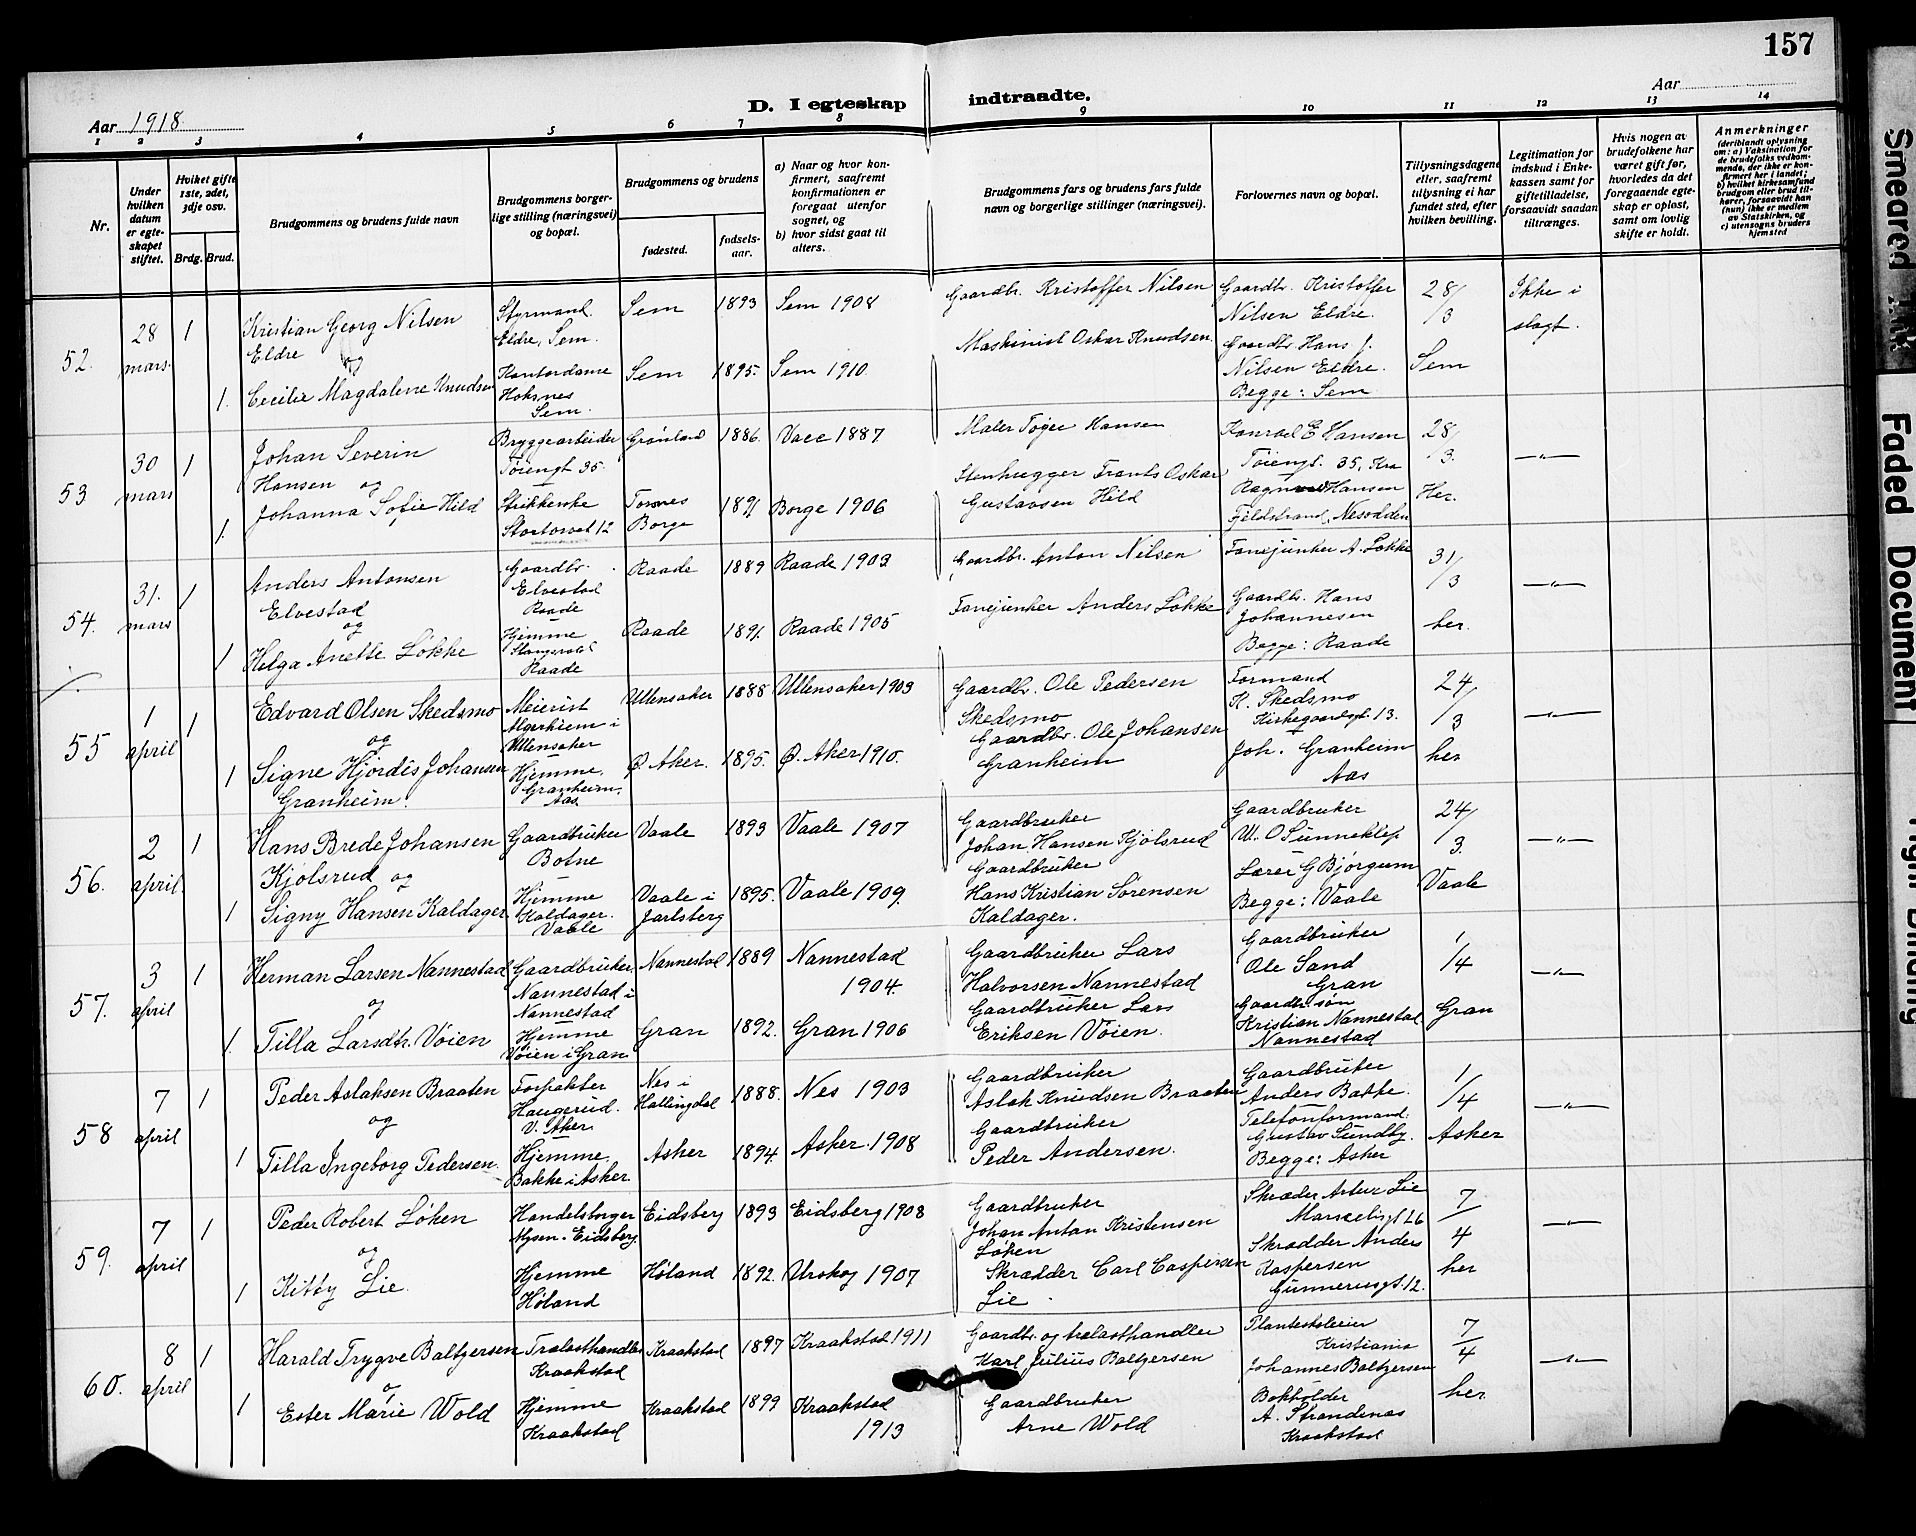 157
D. I egteskap indtraadte.
Aar 1918
Aar
1 2 3 4 5 6 7 8 9 10 11 12 13 14
Nr.
Under hvilken datum er egteskapet stiftet.
Hviket gifte 1ste, 2det, 3dje osv.
Brdg. Brud.
Brudgommens og brudens fulde navn
Brudgommens borgerlige stilling (næringsvei) og bopæl.
Brudgommens og brudens
fødested.
fødselsaar.
a) Naar og hvor konfirmert, saafremt konfirmationen er foregaat utenfor sognet, og
b) hvor sidst gaat til alters.
Brudgommens fars og brudens fars fulde navn og borgerlige stillinger (næringsvei).
Forlovernes navn og bopæl.
Tillysningsdagene eller, saafremt tillysning ei har fundet sted, efter hvilken bevilling.
Legitimation for indskud i Enkekassen samt for giftetilladelse, forsaavidt saadan tiltrænges.
Hvis nogen av brudefolkene har været gift før, hvorledes da det foregaaende egteskap er opløst, samt om lovlig skifte er holdt.
Anmerkninger
(deriblandt oplysning om: a) Vaksination for de brudefolks vedkommende, der ikke er konfirmert her i landet; b) hvilket kirkesamfund brudgom eller brud tilhører, forsaavidt han (hun) ikke er medlem av Statskirken, og c) utensogns bruders hjemsted
52. 28 mars. 1 Kristian Georg Nilsen Eldre og
Styrmand. Eldre, Sem. Sem 1893 Sem 1908
Gaardbr. Kristoffer Nilsen
Gaardbr. Kristoffer Nilsen Eldre.
28/3 Ikke i slagt.
1. Cecilie Magdalene Knudsen
Kontordame Hoksnes Sem. Sem 1895. Sem 1910.
Maskinist Oskar Knudsen
Gaardbr. Hans J. Nilsen Eldre. Begge: Sem. Sem
53 30 mars 1 Johan Severin Hansen og
Bryggearbeider Tøiengt 35. Grønland 1886.
Maler Hansen
E Hansen Tøiengt. 35, Kra
28/3. —"—
1. Johanna Sofie Hild
Stortorvet 12 Torsnes Borge 1891 Borge 1906
Stenhugger Frants Oskar Gustavsen Hild
Hansen Fjeldstrand, Nesodden Her.
54. 31. mars 1 Anders Antonsen Elvestad og
Gaardbr. Elvestad Raade Raade 1889 Raade 1903
Gaardbr. Anton Nilsen
Fanejunker A. Løkke
31/3 —"—
1 Helga Anette Løkke
Hjemme Raade Raade 1891. Raade 1905
Fanejunker Anders Løkke
Gaardbr. Hans Johannesen Begge: Raade her.
55 1 april 1 Edvard Olsen Skedsmo og
Meierist i Ullensaker Ullensaker 1888 Ullensaker 1903
Gaardbr. Ole Pedersen Skedsmo
Formand K. Skedsmo Kirkegaardsgt. 13.
24/3 —"—
1 Signe Hjørdis Johansen Granheim.
Hjemme. Granheim, Aas. Ø. Aker. 1895. Ø. Aker 1910.
Gaardbr. Ole Johansen Granheim
Joh. Granheim Aas her
56. 2 april. 1 Hans Brede Johansen Kjølsrud og
Gaardbruker Botne Vaale 1893 Vaale 1907
Gaardbruker Johan Hansen Kjølsrud
Gaardbruker
24/3. —"—
1 Signy Hansen Kaldager.
Hjemme Kaldager. Vaale Vaale i Jarlsberg 1895. Vaale 1909.
Gaardbruker Hans Kristian Sørensen Kaldager.
Lærer G Bjørgum Begge: Vaale Vaale
57. 3 april 1 Herman Larsen Nannestad og
Gaardbruker, Nannestad i Nannestad Nannestad 1889 Nannestad 1904.
Gaardbruker Lars Halvorsen Nannestad
Gaardbruker Ole Sand Gran
1/4 —"—
1. Tilla Larsdtr. Vøien
Hjemme Vøien i Gran Gran 1892. Gran 1906
Gaardbruker Lars Eriksen Vøien.
Gaardbr.søn Kristian Nannestad Nannestad Gran
58 7 april 1 Peder Aslaksen Braaten og
Forpakter Haugerud. V. Aker Nes i Hallingdal 1888. Nes 1903
Gaardbruker Aslak Knudsen Braaten
Gaardbruker Anders Bakke.
1/4 —"—
1 Tilla Ingeborg Pedersen.
Hjemme, Bakke i Asker. Asker 1894. Asker 1908
Gaardbruker Peder Andersen.
Telefonformand. Gustav Sundby. Begge: Asker Asker
59. 7 april 1 Peder Robert Løken og
Handelsborger Mysen. Eidsberg. Eidsberg 1893 Eidsberg 1908
Gaardbruker Johan Anton Kristensen Løken
Skræder Artur Lie
7/4 —"—
1 Kitty Lie.
Hjemme Høland Høland 1892. Urskog 1907
Skrædder Carl Caspersen Lie
Skrædder Anders Kaspersen Gunnerusgt. 12. her
60. 8 april 1 Harald Trygve Baltzersen og
Trælasthandler Kraakstad Kraakstad 1897 Kraakstad 1911
Gaardbr. og trælasthandler Karl Julius Baltzersen
Planteskoleeier Kristiania Johannes Baltzersen
7/4 —"—
1 Ester Marie Wold
Hjemme Kraakstad Kraakstad 1899 Kraakstad 1913
Gaardbruker Arne Wold
Bokholder A. Strandenæs Kraakstad her
Smeared Ink
Faded Document
Tight Binding